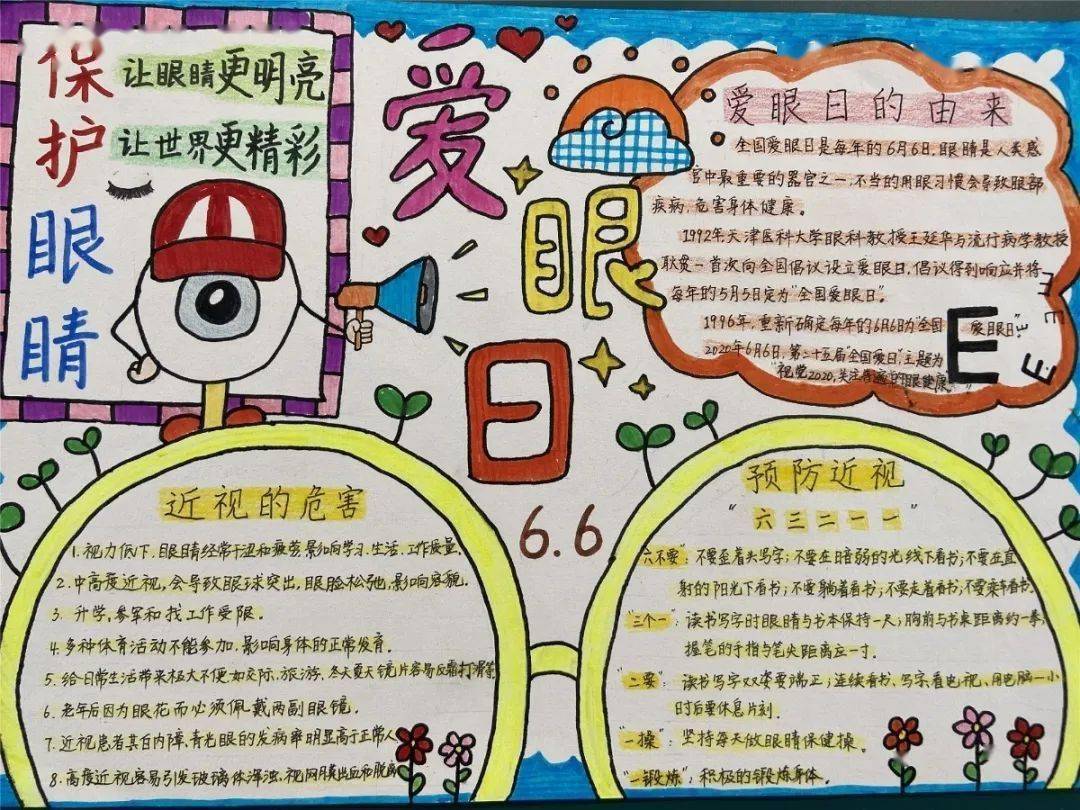 保护
眼睛
让眼睛更明亮
让世界更精彩
爱
眼
日
6.6
爱眼日的由来
全国爱眼日是每年的6月6日,眼睛是人类感
官中最重要的器官之一,不当的用眼习惯会导致眼部
疾病,危害身体健康。
1992年,天津医科大学眼科教授王延华与流行病学教授
耿贯一首次向全国倡议设立爱眼日,倡议得到响应并将
每年的5月5日定为"全国爱眼日"。
1996年,重新确定每年的6月6日为"全国爱眼日"
2020年6月6日,第二十五届"全国爱日",主题为
"视觉2020,关注普遍的眼健康"
E
E
E
E
E
近视的危害
1.视力低下,眼睛经常干涩和疲劳,影响学习、生活、工作质量。
2.中高度近视,会导致眼球突出,眼睑松弛,影响容貌。
3.升学,参军和找工作受限。
4.多种体育活动不能参加,影响身体的正常发育。
5.给日常生活带来极大不便如交际、旅游、冬天夏天镜片容易反霜打滑等
6.老年后因为眼花而必须佩戴两副眼镜。
7.近视患者其白内障,青光眼的发病率明显高于正常人
8.高度近视容易引发玻璃体浑浊,视网膜出血和脱离
预防近视
"六三二一一"
"六不要":不要歪着头写字;不要在暗弱的光线下看书;不要在直
射的阳光下看书;不要躺着看书;不要走着看书;不要乘车看书
"三个一":读书写字时眼睛与书本保持一尺;胸前与书桌距离约一拳;
握笔的手指与笔尖距离应一寸。
"二要":读书写字双姿要端正;连续看书、写字、看电视、用电脑一小
时后要休息片刻。
"一操":坚持每天做眼睛保健操。
"一锻炼":积极的锻炼身体。